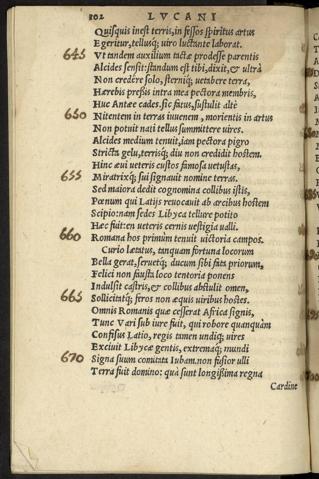 102 LVCANI
Quisquis inest terris, in fessos spiritus artus
Egeritur, tellusq; uiro luctante laborat.
645 Vt tandem auxilium tactæ prodesse parentis
Alcides sensit: standum est tibi, dixit, & ultrà
Non credere solo, sterniq; uetabere terra,
Hærebis pressis intra mea pectora membris,
Huc Antæe cades. sic fatus, sustulit altè
650 Nitentem in terras iuuenem, morientis in artus
Non potuit nati tellus summittere uires.
Alcides medium tenuit, iam pectora pigro
Stricta gelu, terrisq; diu non credidit hostem.
Hinc æui ueteris custos famosa uetustas,
655 Miratrixq; sui signauit nomine terras.
Sed maiora dedit cognomina collibus istis,
Pœnum qui Latijs reuocauit ab arcibus hostem
Scipio: nam sedes Libyca tellure potito
Hæc fuit: en ueteris cernis uestigia ualli.
660 Romana hos primùm tenuit uictoria campos.
Curio lætatus, tanquam fortuna locorum
Bella gerat, seruetq; ducum sibi fata priorum,
Felici non fausta loco tentoria ponens
Indulsit castris, & collibus abstulit omen,
665 Sollicitatq; feros non æquis uiribus hostes.
Omnis Romanis quæ cesserat Africa signis,
Tunc Vari sub iure fuit, qui robore quanquàm
Confisus Latio, regis tamen undiq; uires
Exciuit Libycæ gentis, extremaq; mundi
670 Signa suum comitata Iubam. non fusior ulli
Terra fuit domino: quà sunt longissima regna
Cardine